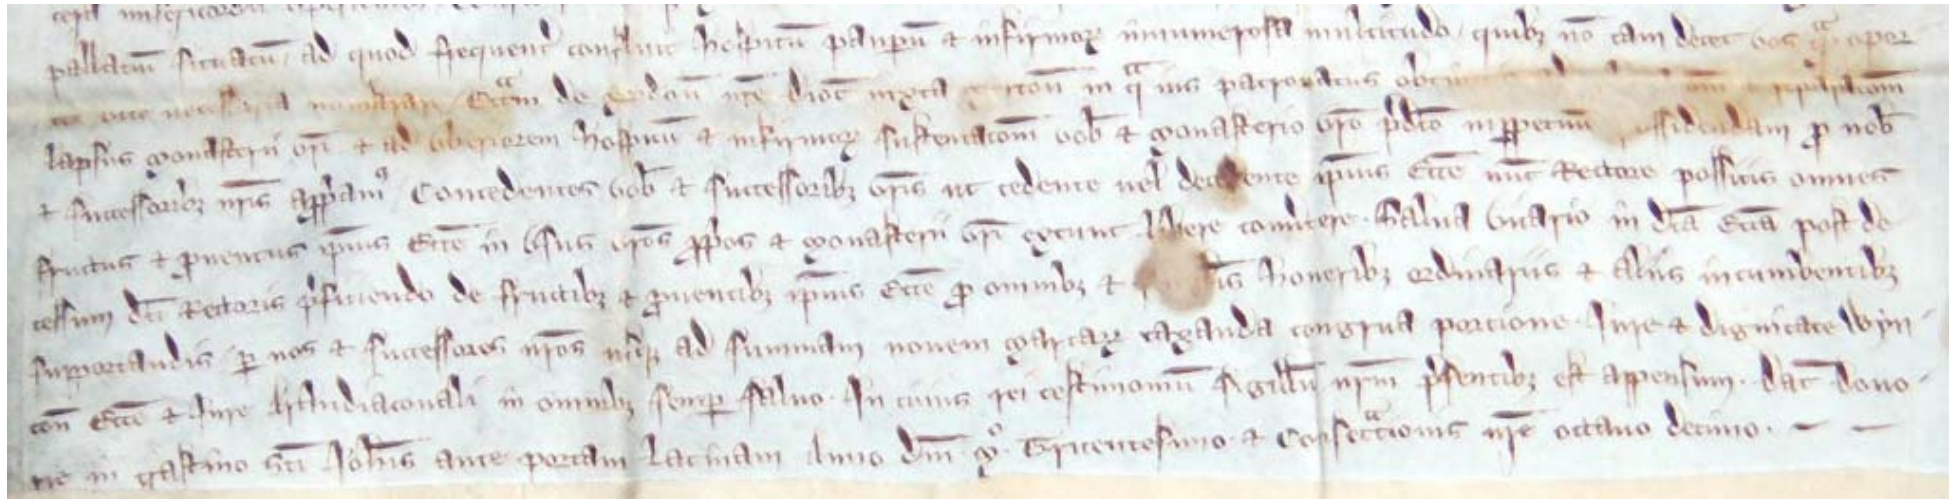 pallaciū situatū / ad quod frequent̄ confluit hospitū paupū & infirmoꝝ innumerosa multitudo / quibꝫ nō tam decet vos qᵃ opor
necessaria Ecc̄am de n̄re dioc̄ iuxta in qᵃ ius patronatus
lapsus monasterii vr̄i & ad vberiorem hospitū & infirmoꝝ sustentacōm vob̄ & monasterio vr̄o p̄dc̄o inppetuū possidendam ꝓ nob̄
& successoribꝫ nr̄is apꝓpam⁹ / Concedentes vob̄ & successoribꝫ vr̄is ut cedente uel decedente ip̄ius Ecc̄e nūc Rectore possitis omnes
fructus & ꝓuentus ip̄ius Ecc̄e in vsus vr̄os ꝓp̄os & monasterii vr̄i extunc libere conu̅tere · Salua vicario in dc̄a Ecc̄a post de
cessum dc̄i Rectoris p̄ficiendo de fructibꝫ & ꝓuentibꝫ ip̄ius Ecc̄e ꝓ omnibꝫ & honeribꝫ ordinariis & aliis incumbentibꝫ
supportandis / ꝑ nos & successores nr̄os ad summam nouem marcaꝝ taxanda congrua portione · Iure & dignitate Wyn /
ton̄ Ecc̄e & Iure Archidiaconali in omnibꝫ semꝑ saluo · In cuius rei testimoniū sigillū nr̄m p̄sentibꝫ est appensum · Dat̄ /
in crastino sc̄i Joh̄is ante portam latinam Anno dn̄i · mº · Tricentesimo · & Consecᵃtionis nr̄e octauo decimo · — —